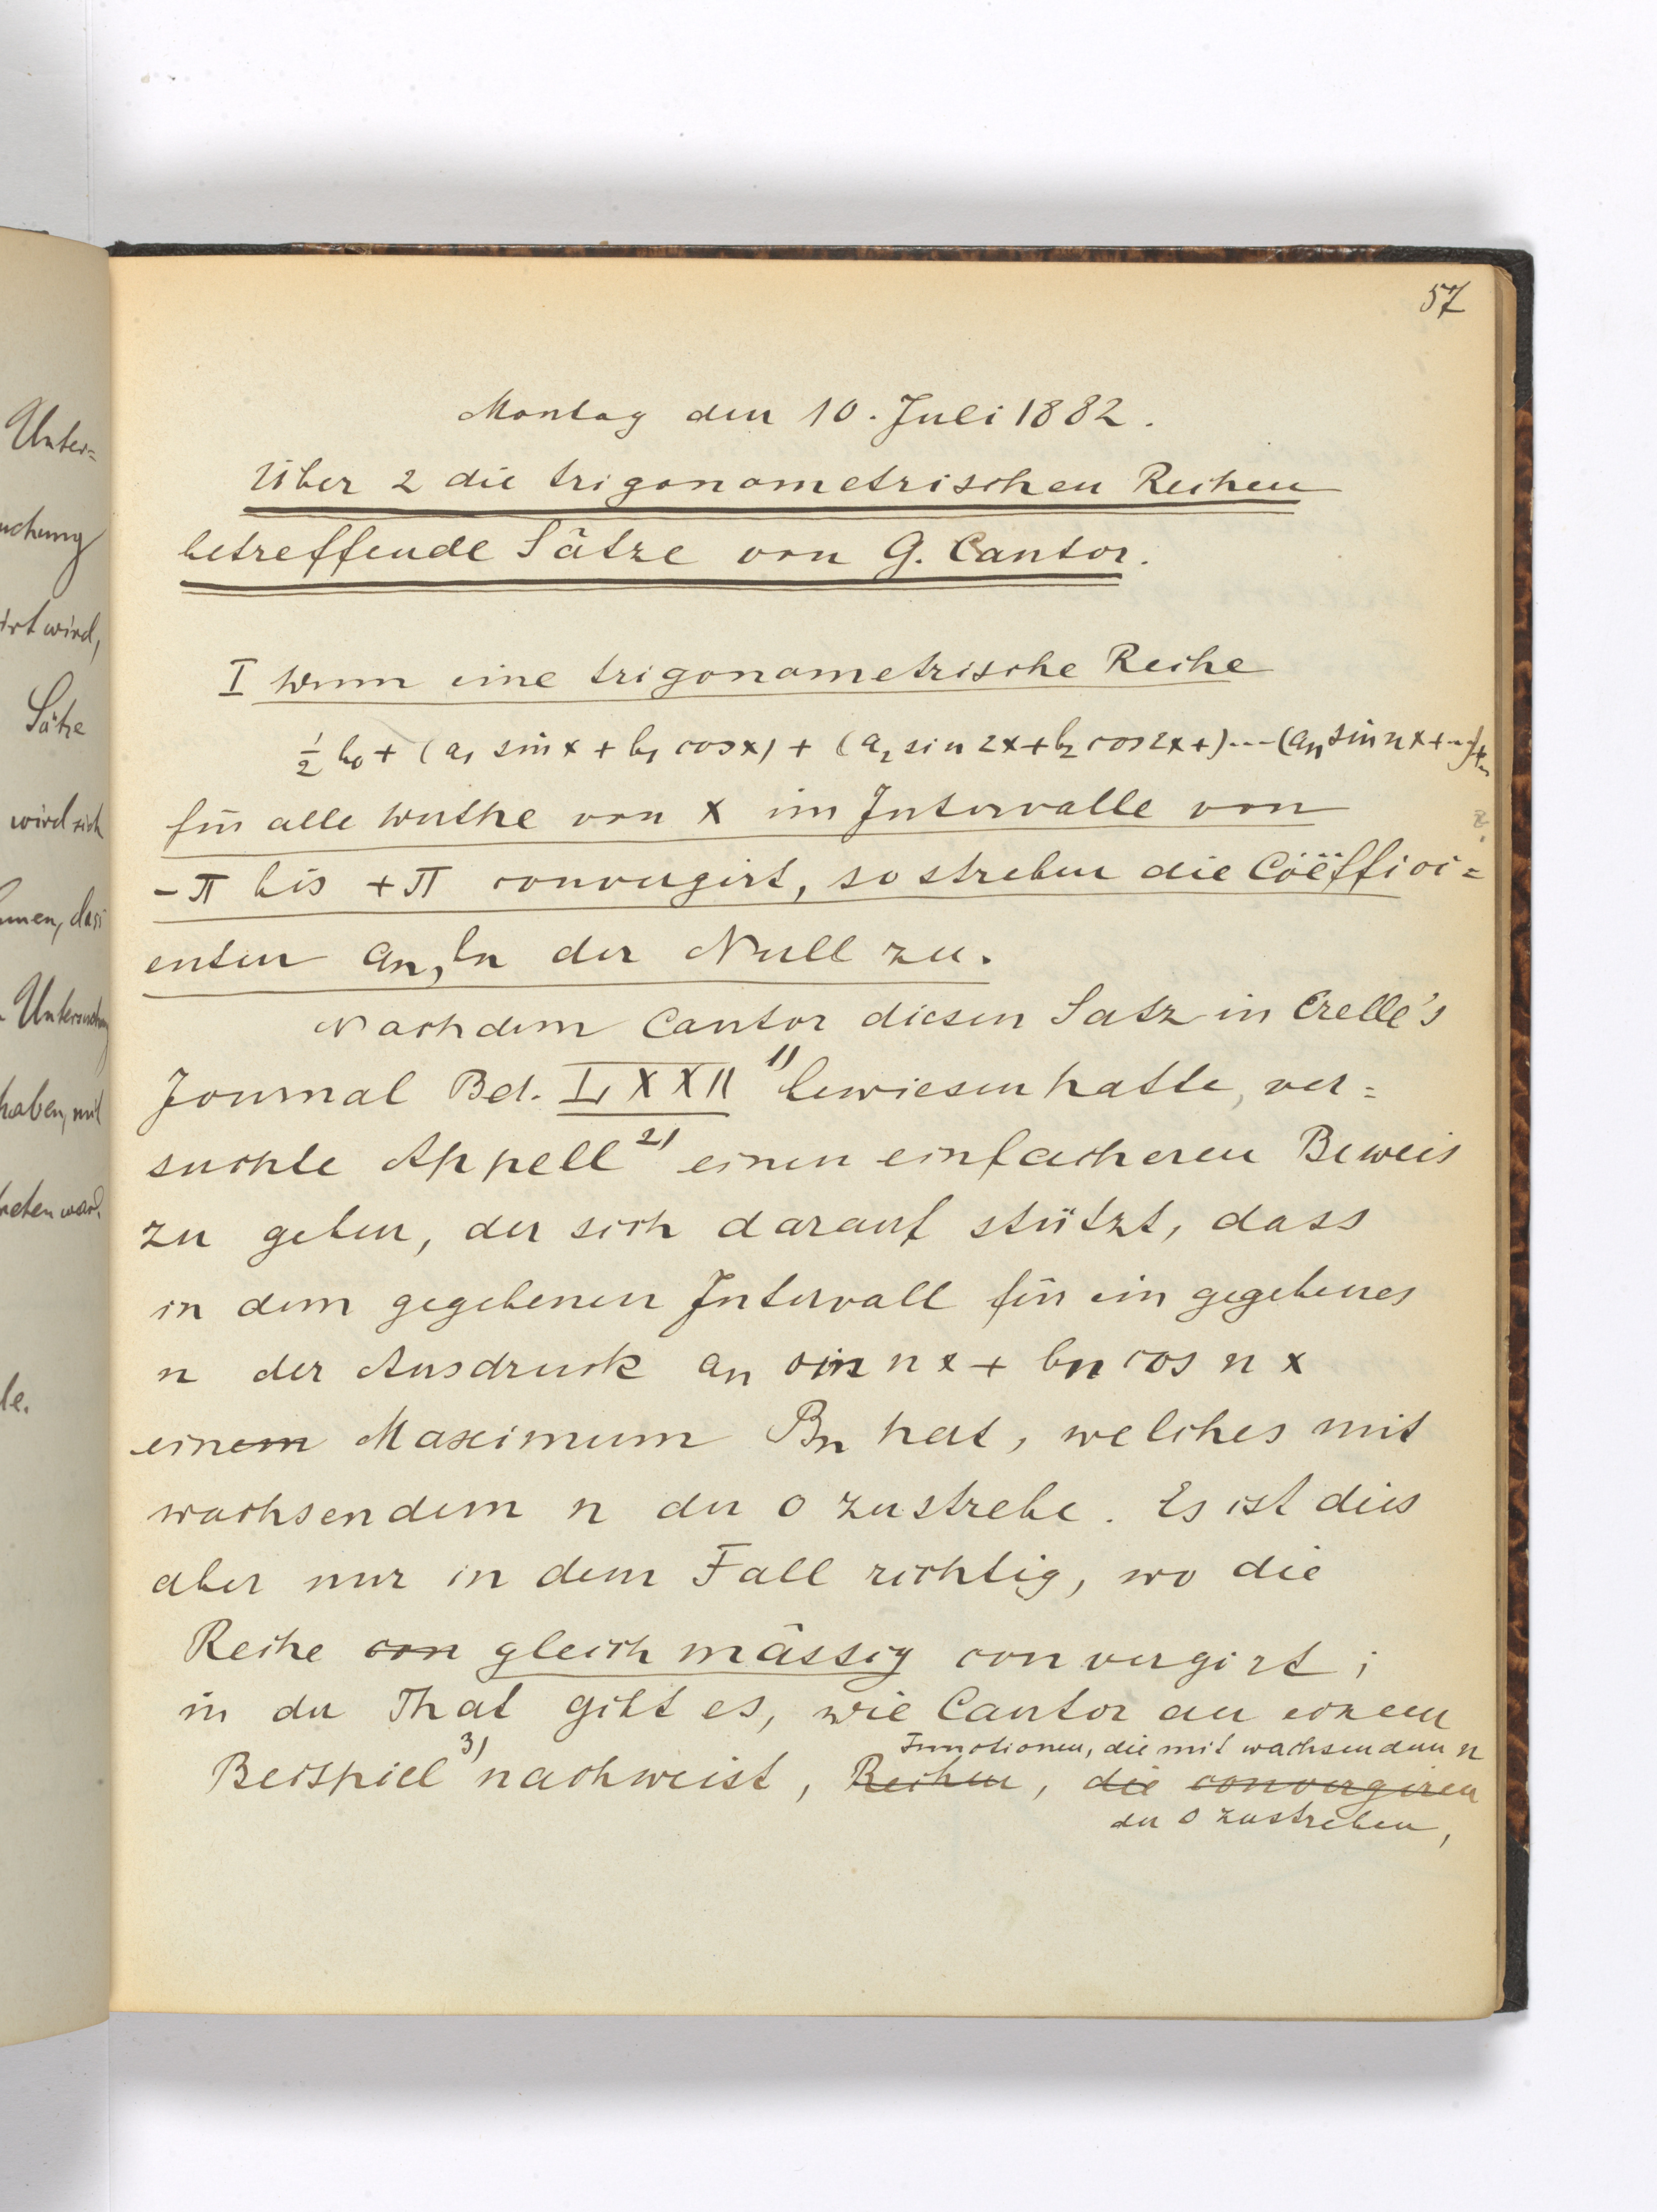 57
Montag den 10. Juli 1882.
Über 2 die trigonometrischen Reihen
betreffende Sätze von G. Cantor.
I Wenn eine trigonometrische Reihe
½ b₀ + (a₁ sin x + b₁ cos x) + (a₂ sin 2x + b₂ cos 2x +) --- (aₙ sin nx + --)+
für alle Werthe von x im Intervalle von
-π bis +π convergirt, so streben die Coëffici=
enten aₙ, bₙ der Null zu.
Nachdem Cantor diesen Satz in Crelle's
Journal Bd. LXXII 1) bewiesen hatte, ver=
suchte Appell 2) einen einfacheren Beweis
zu geben, der sich darauf stützt, dass
in dem gegebenen Intervall für ein gegebenes
n der Ausdruck aₙ sin nx + bₙ cos nx
einem Maximum Bₙ hat, welches mit
wachsendem n der 0 zustrebe. Es ist dies
aber nur in dem Fall richtig, wo die
Reihe con gleichmässig convergirt;
in der That gibt es, wie Cantor an einem
Functionen, die mit wachsendem n
Beispiel 3) nachweist, Reihen, die convergiren
der 0 zustreben,
Unter=
uchung
irt wird,
Sätze
wird sich
men, dass
Untersuchung
haben, mit
reten war.
le.